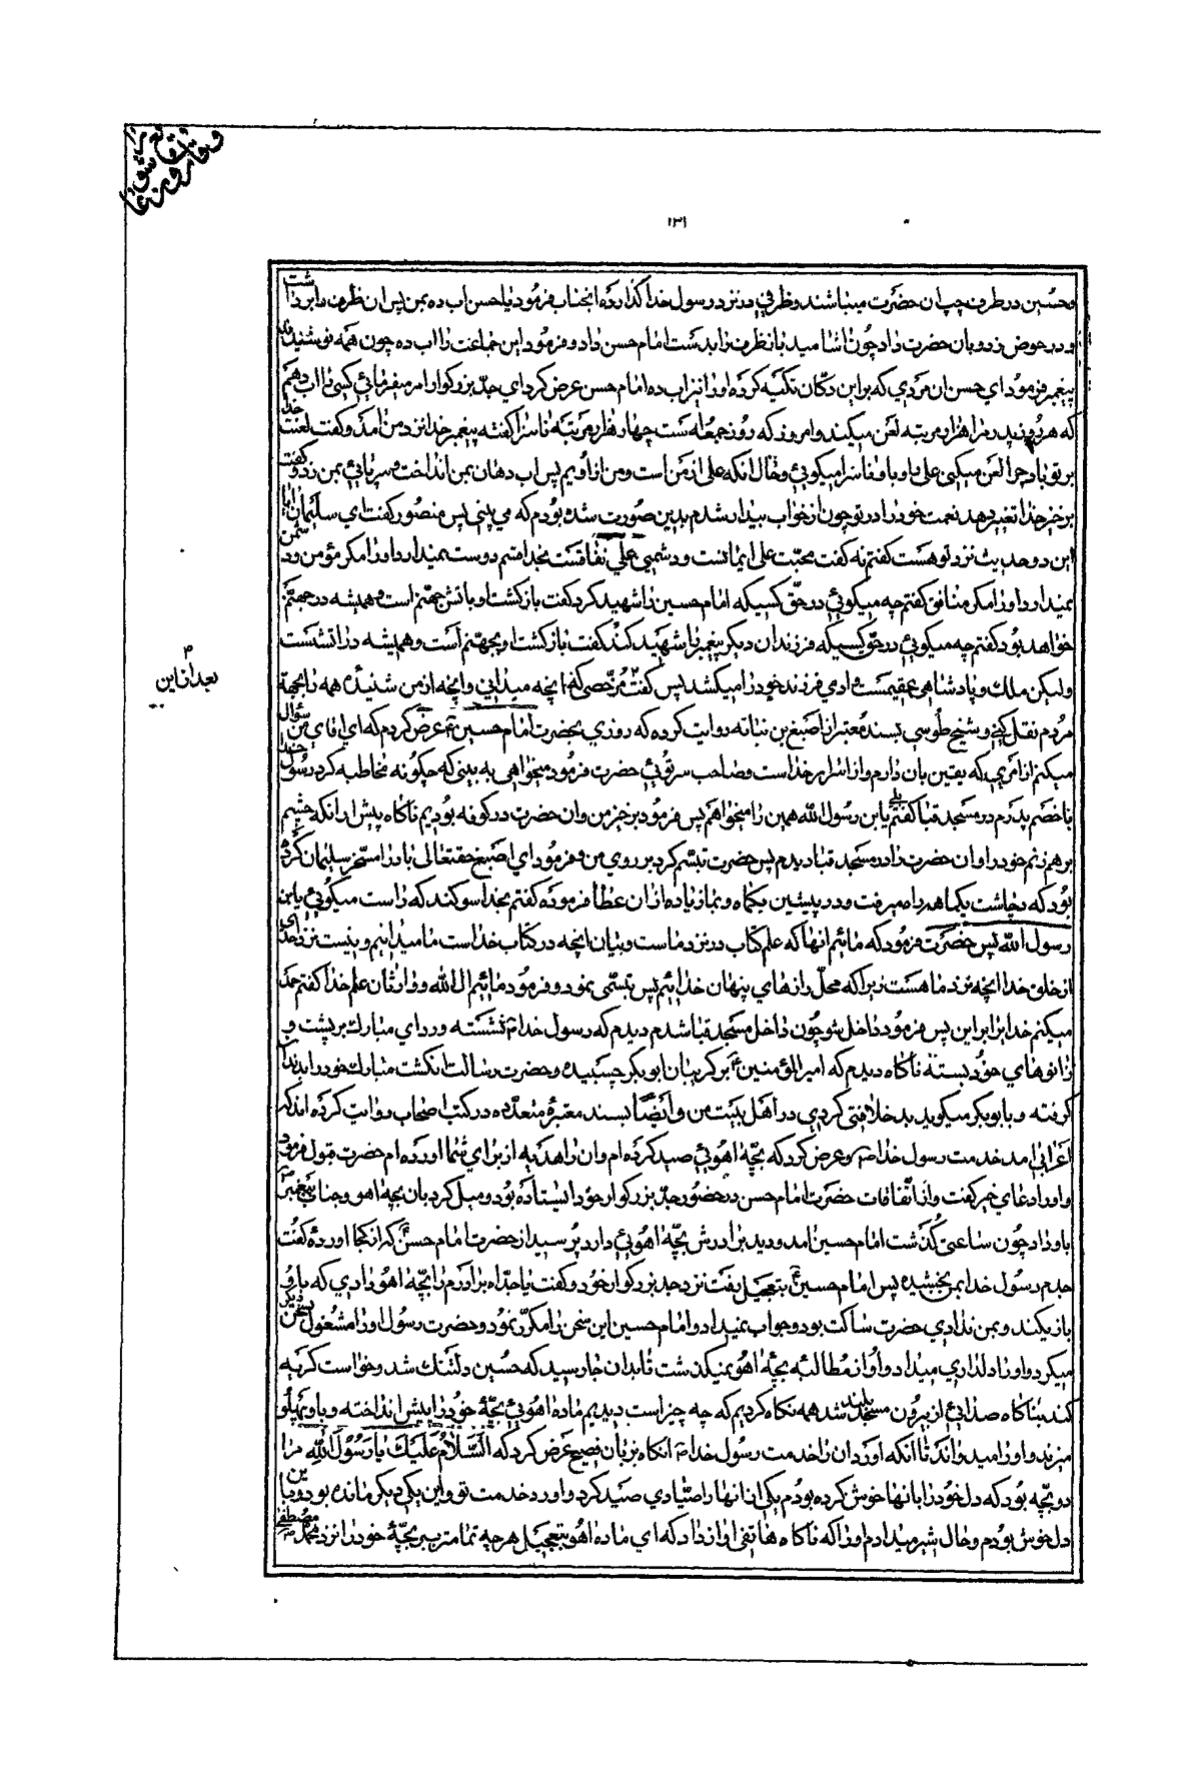 وقایع روز عاشورا
۱۳۱
وحسین در طرف چپ ان حضرت میباشند و ظرفی در نزد رسول خدا گذارده انجناب فرمود یا حسن اب ده بمن پس ان ظرف را برداشت
و در حوض زد و بان حضرت داد چون اشامید بان ظرف را بدست امام حسن داد و فرمود این جماعت را اب ده چون همه نوشیدند
پیغمبر فرمود ای حسن ان مردی که بر این دکان تکیه کرده او را نیز اب ده امام حسن عرض کرد ای جد بزرگوار امر میفرمائی کسی را اب دهم
که هر روز پدر مرا هزار مرتبه لعن میکند و امروز که روز جمعه است چهار هزار مرتبه ناسزا گفته پیغمبر خدا نزد من آمد و گفت لعنت خدا
بر تو باد چرا لعن میکنی علی را و باو ناسزا میگوئی و حال انکه علی از من است و من از اویم پس اب دهان بمن انداخت و سر پائی بمن زد و گفت
برخیز خدا تغییر دهد نعمت خود را در تو چون از خواب بیدار شدم بدین صورت شده بودم که می بینی پس منصور گفت ای سلیمان ایا
این دو حدیث نزد تو هست گفتم نه گفت محبت علی ایمانست و دشمنی علی نفاقست بخدا قسم دوست نمیدارد او را مگر مؤمن و دشمن
نمیدارد او را مگر منافق گفتم چه میگوئی در حق کسیکه امام حسین را شهید کرد گفت بازگشت او باتش جهنم است و همیشه در جهنم
خواهد بود گفتم چه میگوئی در حق کسیکه فرزندان دیگر پیغمبر را شهید کند گفت بازگشت او بجهنم است و همیشه در اتشست
ولیکن ملک و پادشاهی عقیمست ادمی فرزند خود را میکشد پس گفت مرخصی که انچه میدانی و انچه از من شنیده همه را بجهة
مردم نقل کنی و شیخ طوسی بسند معتبر از اصبغ بن نباته روایت کرده که روزی بحضرت امام حسین ع عرض کردم که ای اقای من سؤال
میکنم از امری که یقین بان دارم و از اسرار خدا است و صاحب سر توئی حضرت فرمود میخواهی به بینی که چگونه مخاطبه کرد رسول خدا
با خصم پدرم در مسجد قبا گفتم بلی یا بن رسول الله همین را میخواهم پس فرمود برخیز من و ان حضرت در کوفه بودیم ناگاه پیش از انکه چشم
برهم زنم خود را و ان حضرت را در مسجد قبا دیدم پس حضرت تبسم کرد بر روی من و فرمود ای اصبغ حقتعالی باد را مسخر سلیمان کرده
بود که بچاشت یکماهه راه میرفت و در پیشین یکماه و بما زیاده از ان عطا فرموده گفتم بخدا سوگند که راست میگوئی یا بن
رسول الله پس حضرت فرمود که مائیم انها که علم کتاب در نزد ماست و بیان انچه در کتاب خدا است ما میدانیم و نیست نزد احدی
از خلق خدا انچه نزد ما هست زیرا که محل رازهای پنهان خدائیم پس تبسمی نمود و فرمود مائیم ال الله و وارثان علم خدا گفتم حمد
میکنم خدا را بر این پس فرمود داخل شو چون داخل مسجد قبا شدم دیدم که رسول خدا ص نشسته و ردای مبارک بر پشت و
زانوهای خود بسته ناگاه دیدم که امیر المؤمنین ع بر گریبان ابوبکر چسبیده و حضرت رسالت انگشت مبارک خود را بدندان
گرفته و با بوبکر میگوید بد خلافتی کردی در اهل بیت من و ایضا بسند معتبره متعدده در کتب اصحاب روایت کرده اند که
اعرابی امد خدمت رسول خدا ص و عرض کرد که بچه اهوئی صید کرده ام و ان را هدیه از برای شما اورده ام حضرت قبول فرمود
و او را دعای خیر گفت و از اتفاقات حضرت امام حسن در حضور جد بزرگوار خود ایستاده بود و میل کرد بان بچه اهو و جناب پیغمبر ص
باو داد چون ساعتی گذشت امام حسین امد و دید برادرش بچه اهوئی دارد پرسید از حضرت امام حسن که از کجا اورده گفت
جدم رسول خدا بمن بخشیده پس امام حسین ع بتعجیل رفت نزد جد بزرگوار خود و گفت یا جداه برادرم را بچه اهو دادی که با او
بازی کند و بمن ندادی حضرت ساکت بود و جواب نمیداد و امام حسین این سخن را مکرر نمود و حضرت رسول او را مشغول بسخن دیگر
میکرد و او را دلداری میداد و او از مطالبه بچه اهو نمیگذشت تا بدان جا رسید که حسین دلتنگ شد و خواست گریه
کند بناگاه صدائی از بیرون مسجد بلند شد همه نگاه کردیم که چه چیز است دیدیم ماده اهوئی بچه خود را پیش انداخته و باو پهلو
میزند و او را میدواند تا انکه اورد ان را خدمت رسول خدا ص انگاه بزبان فصیح عرض کرد که السلام علیک یا رسول الله مرا
دو بچه بود که دل خود را بانها خوش کرده بودم یکی از انها را صیادی صید کرد و اورد خدمت تو و این یکی دیگر مانده بود و باین
دل خوش بودم و حال شیر میدادم او را که ناگاه هاتفی اواز داد که ای ماده اهو بتعجیل هر چه تمامتر ببر بچه خود را نزد محمد مصطفی ص
بعد از این